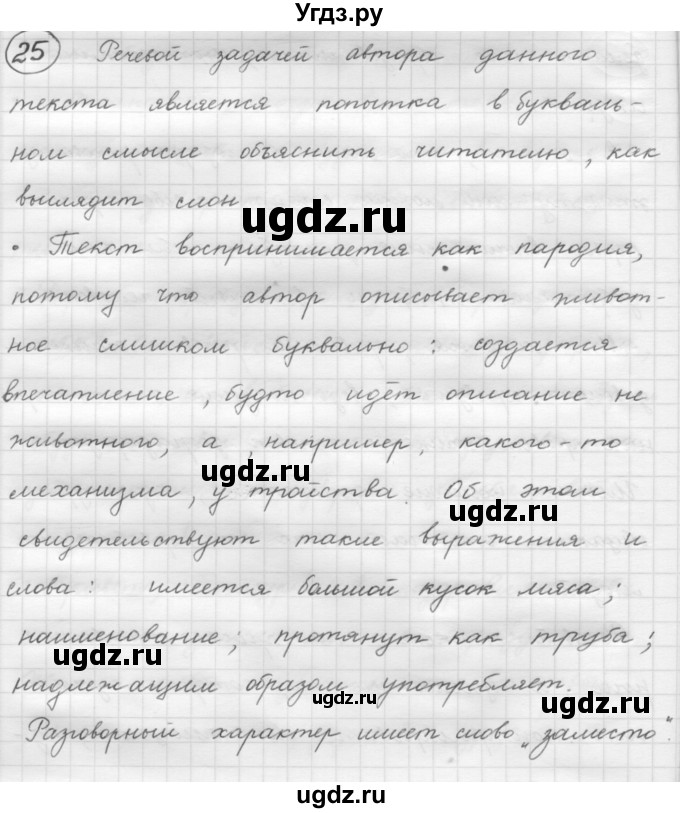 Угдз.ру
25 Речевой задачей автора данного
текста является попытка в букваль-
ном смысле объяснить читателю, как
выглядит слон
ugdz.ru
• Текст воспринимается как пародия,
потому что автор описывает живот-
ное слишком буквально: создается
впечатление, будто идёт описание не
животного, а, например, какого-то
ugdz.ru
механизма, у тройства. Об этом
ugdz.ru
свидетельствуют такие выражения и
слова: имеется большой кусок мяса;
наименование; протянут как труба;
ugdz.ru
надлежащим образом употребляет.
ugdz.ru
Разговорный характер имеет слово „заместо".
ugdz.ru